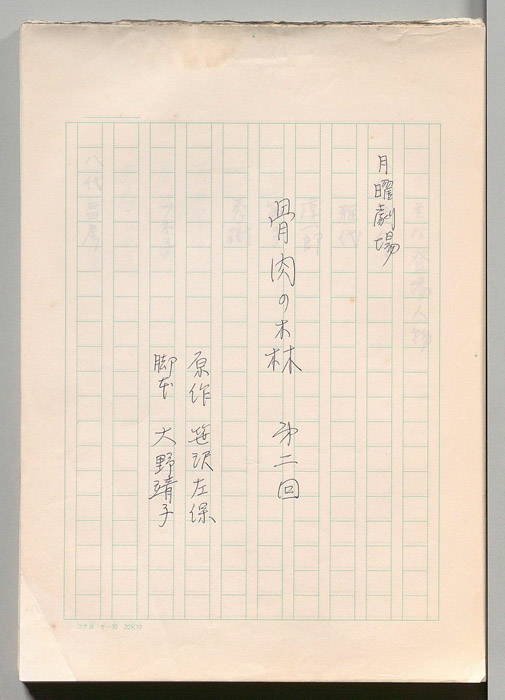 月曜劇場
骨肉の森　第二回
原作　笹沢左保
脚本　大野靖子
コクヨ ケ-10 20×10